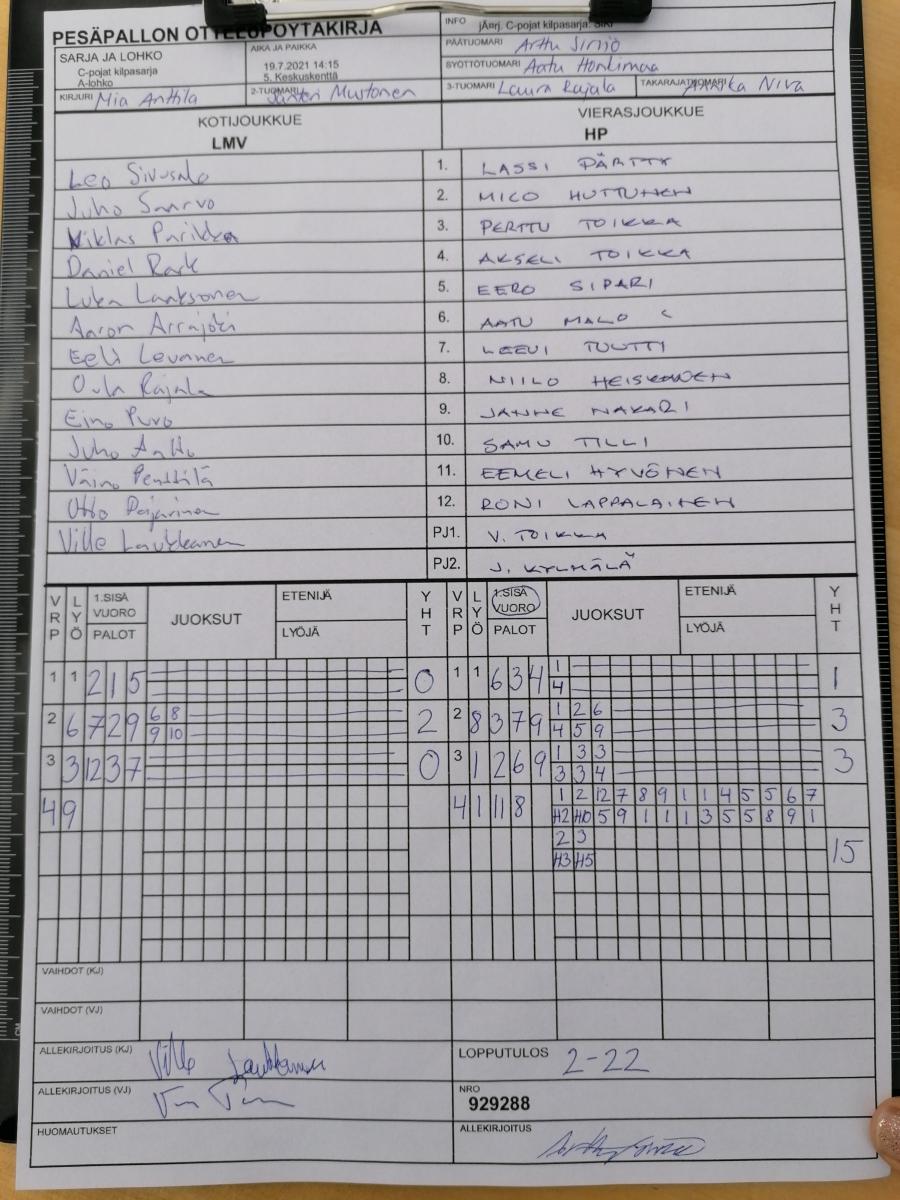 PESÄPALLON OTTELUPÖYTÄKIRJA
INFO jÄrj. C-pojat kilpasarja:
SARJA JA LOHKO
C-pojat kilpasarja
A-lohko
AIKA JA PAIKKA
19.7.2021 14:15
5. Keskuskenttä
PÄÄTUOMARI Arttu Sirviö
SYÖTTÖTUOMARI Aatu Honkimaa
KIRJURI Mia Anttila
2-TUOMARI Mustonen
3-TUOMARI Laura Rajala
TAKARAJATUOMARI Niva
KOTIJOUKKUE
LMV
VIERASJOUKKUE
HP
Leo Sivusalo 1. LASSI PÄRTTY
Juho Saarvo 2. MICO HUTTUNEN
Niklas Parikka 3. PERTTU TOIKKA
Daniel Rask 4. AKSELI TOIKKA
Luka Laaksonen 5. EERO SIPARI
Aaron Arrajoki 6. AATU MALO
Eeli Levanen 7. LEEVI TUUTTI
Oula Rajala 8. NIILO HEISKANEN
Eino Puro 9. JANNE NAKARI
Juho Aalto 10. SAMU TILLI
Väinö Penttilä 11. EEMELI HYVÖNEN
Otto Pajarinen 12. RONI LAPPALAINEN
Ville Laukkanen PJ1. V. TOIKKA
PJ2. J. KYLMÄLÄ
VRP LYÖ 1.SISÄ VUORO PALOT JUOKSUT ETENIJÄ LYÖJÄ YHT VRP LYÖ 1.SISÄ VUORO PALOT JUOKSUT ETENIJÄ LYÖJÄ YHT
1 1 2 1 5 0 1 1 6 3 4 1 1
4
2 6 7 2 9 6 8 2 2 8 3 7 9 1 2 6 3
9 10 4 5 9
3 3 12 3 7 0 3 1 2 6 9 1 3 3 3
3 3 4
4 9 4 1 11 8 1 2 12 7 8 9 1 1 4 5 5 6 7
H2 H10 5 9 1 1 1 3 5 5 8 9 1
2 3 15
H3 H5
VAIHDOT (KJ)
VAIHDOT (VJ)
ALLEKIRJOITUS (KJ) Ville Laukkanen
LOPPUTULOS 2-22
ALLEKIRJOITUS (VJ)
NRO
929288
HUOMAUTUKSET
ALLEKIRJOITUS